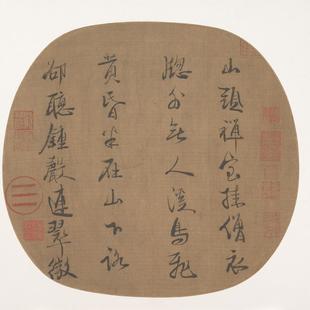 山頭禪室挂僧衣
窻外無人溪鳥飛
黄昏半在山下路
卻聽鍾聲連翠微